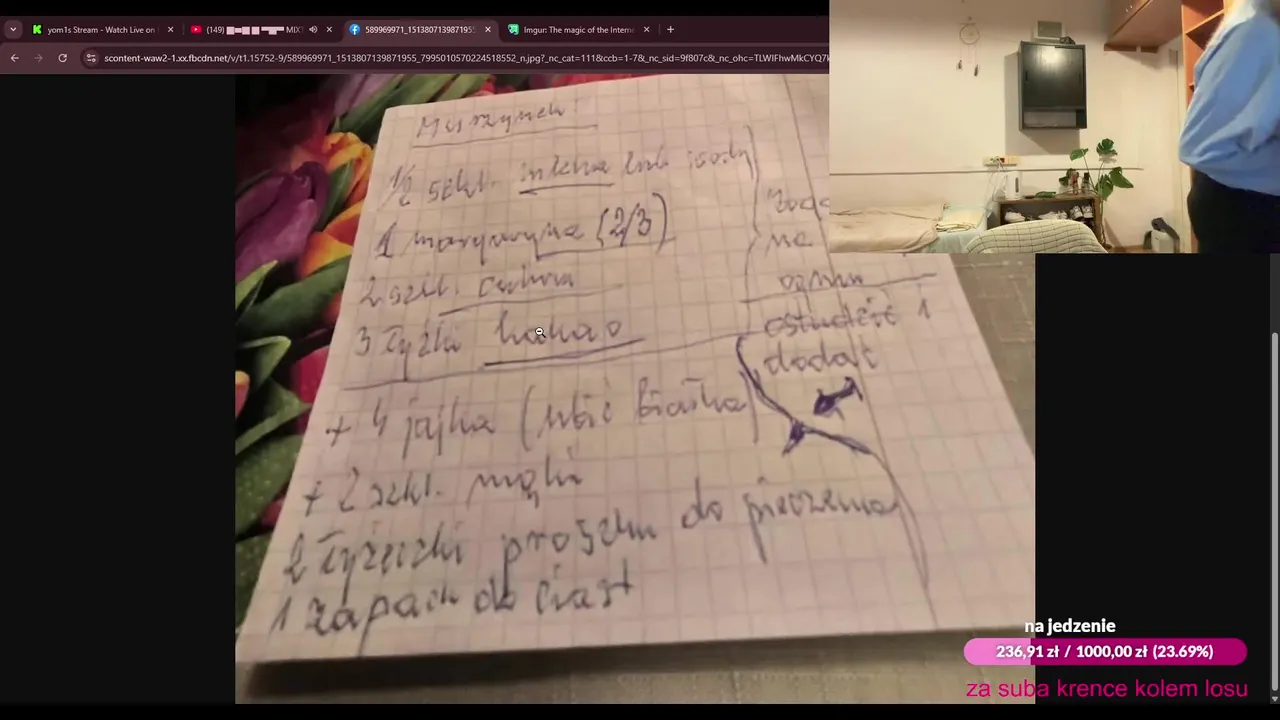 yom1s Stream - Watch Live on
(149)
MIX
589969971_151380713987195
Imgur: The magic of the Interne
scontent-waw2-1.xx.fbcdn.net/v/t1.15752-9/589969971_1513807139871955_7995010570224518552_n.jpg?_nc_cat=111&ccb=1-7&_nc_sid=9f807c&_nc_ohc=TLWIFhwMkCYQ7k
Murzynek:
1/2 szkl. mleka lub wody
1 margaryna (2/3)
2 szkl. cukru
3 łyżki kakao
na
ogniu
ostudzić i
dodać
+ 4 jajka (ubić białka)
+ 2 szkl. mąki
2 łyżeczki proszku do pieczenia
1 zapach do ciast
na jedzenie
236,91 zł / 1000,00 zł (23.69%)
za suba krence kolem losu